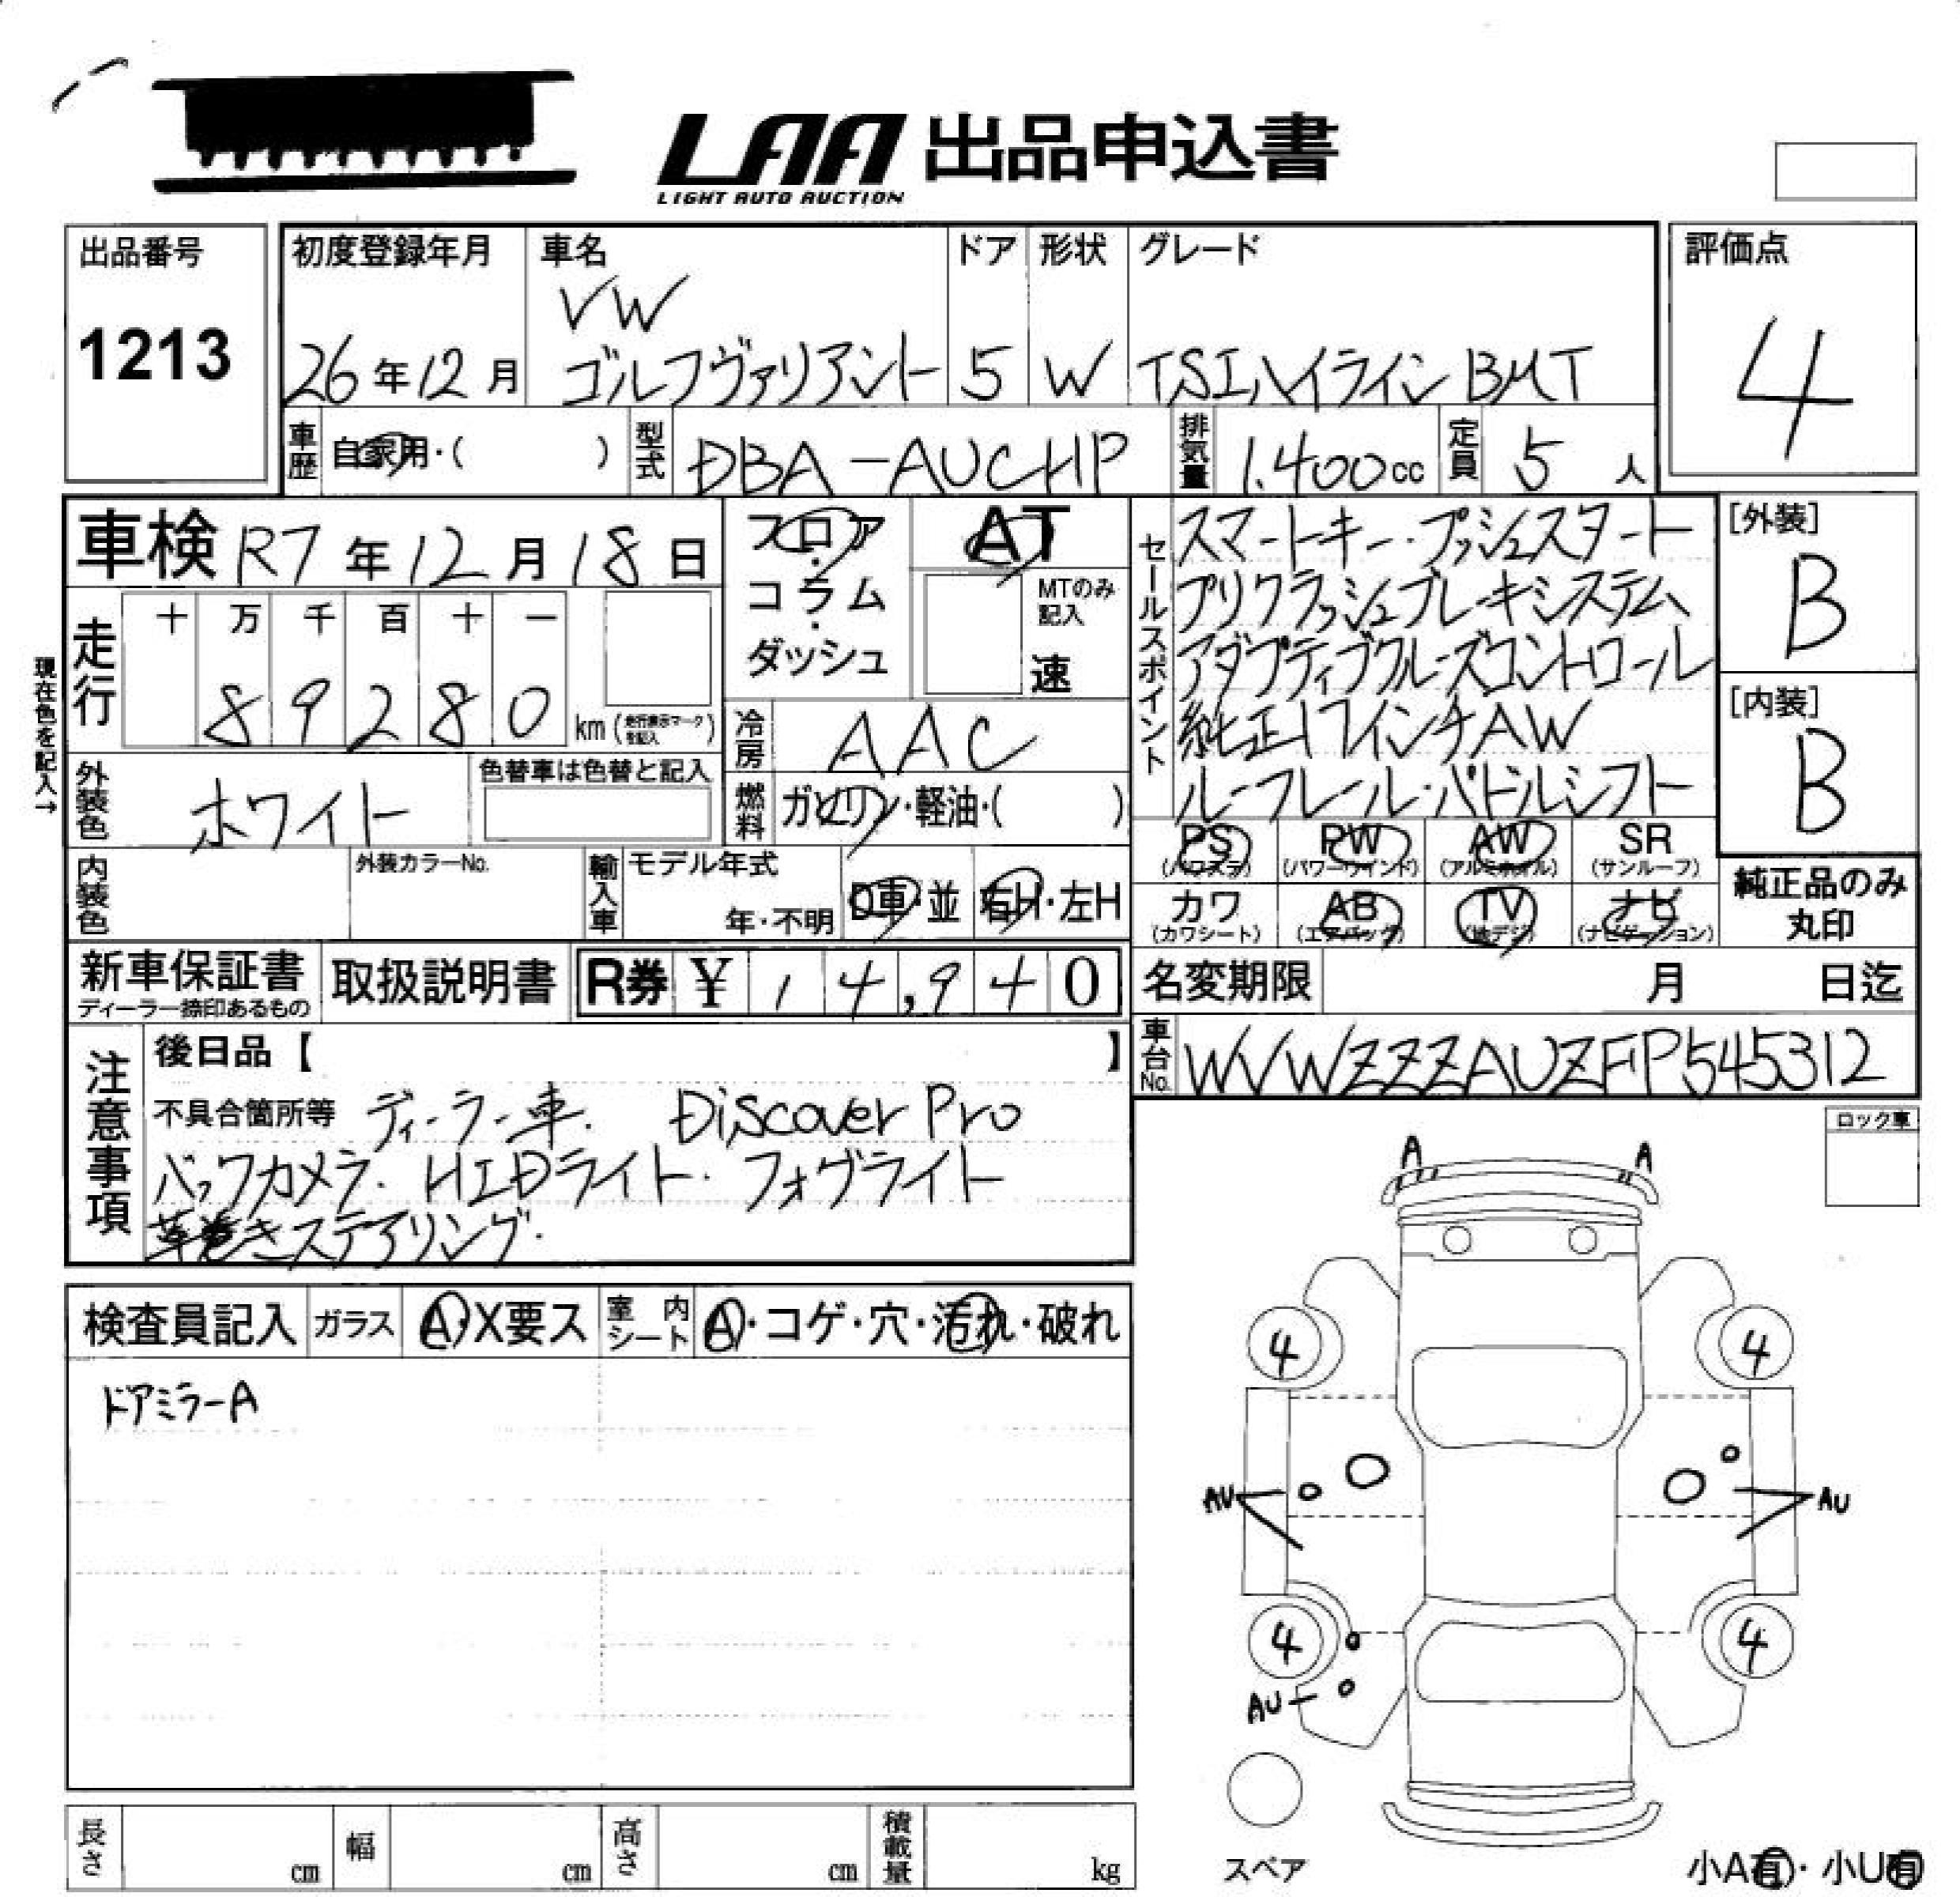 LAA 出品申込書
LIGHT AUTO AUCTION
出品番号
1213
初度登録年月
26年12月
車名
VW
ゴルフヴァリアント
ドア
5
形状
W
グレード
TSIハイラインBMT
評価点
4
車歴 自家用・( )
型式 DBA-AUCHP
排気量 1.400cc
定員 5人
車検 R7年12月18日
フロア・コラム・ダッシュ
AT
MTのみ記入
速
セールスポイント
スマートキー・プッシュスタート
プリクラッシュブレーキシステム
アダプティブクルーズコントロール
純正17インチAW
ルーフレール・パドルシフト
[外装]
B
[内装]
B
現在色を記入→
走行
十 万 千 百 十 一
8 9 2 8 0 km (走行表示マークを記入)
冷房 AAC
外装色 ホワイト
色替車は色替と記入
燃料 ガソリン・軽油・( )
内装色
外装カラーNo.
輸入車
モデル年式
年・不明
D車・並 右H・左H
PS (パワステ)
PW (パワーウインド)
AW (アルミホイル)
SR (サンルーフ)
カワ (カワシート)
AB (エアバッグ)
TV (地デジ)
ナビ (ナビゲーション)
純正品のみ丸印
新車保証書
ディーラー捺印あるもの
取扱説明書
R券 ¥ 14,940
名変期限 月 日迄
車台No. WVWZZZAUZFP545312
注意事項
後日品【 】
不具合箇所等 ディーラー車. Discover Pro
バックカメラ. HIDライト. フォグライト
革巻きステアリング.
ロック車
検査員記入
ガラス A・X要ス
室内シート A・コゲ・穴・汚れ・破れ
ドアミラーA
A A
4 4
AU AU
4 4
AU
スペア
小A有・小U有
長さ cm
幅 cm
高さ cm
積載量 kg